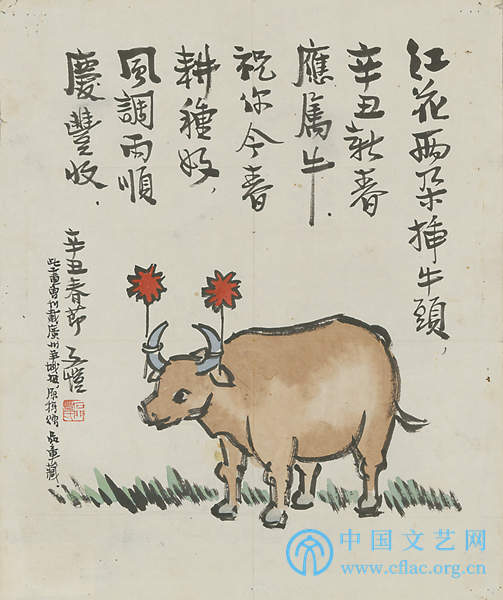 紅花兩朵插牛頭，
辛丑新春
應屬牛．
祝你今春
耕種好，
風調雨順
慶豐收．
辛丑春節 子愷
此畫曾刊載廣州羊城報，原稿贈
中国文艺网
www.cflac.org.cn